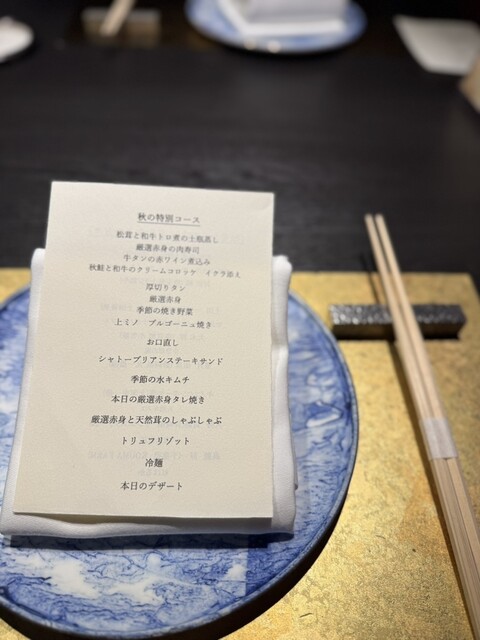 秋の特別コース
松茸と和牛トロ煮の土瓶蒸し
厳選赤身の肉寿司
牛タンの赤ワイン煮込み
秋鮭と和牛のクリームコロッケ　イクラ添え
厚切りタン
厳選赤身
季節の焼き野菜
上ミノ　ブルゴーニュ焼き
お口直し
シャトーブリアンステーキサンド
季節の水キムチ
本日の厳選赤身タレ焼き
厳選赤身と天然茸のしゃぶしゃぶ
トリュフリゾット
冷麺
本日のデザート